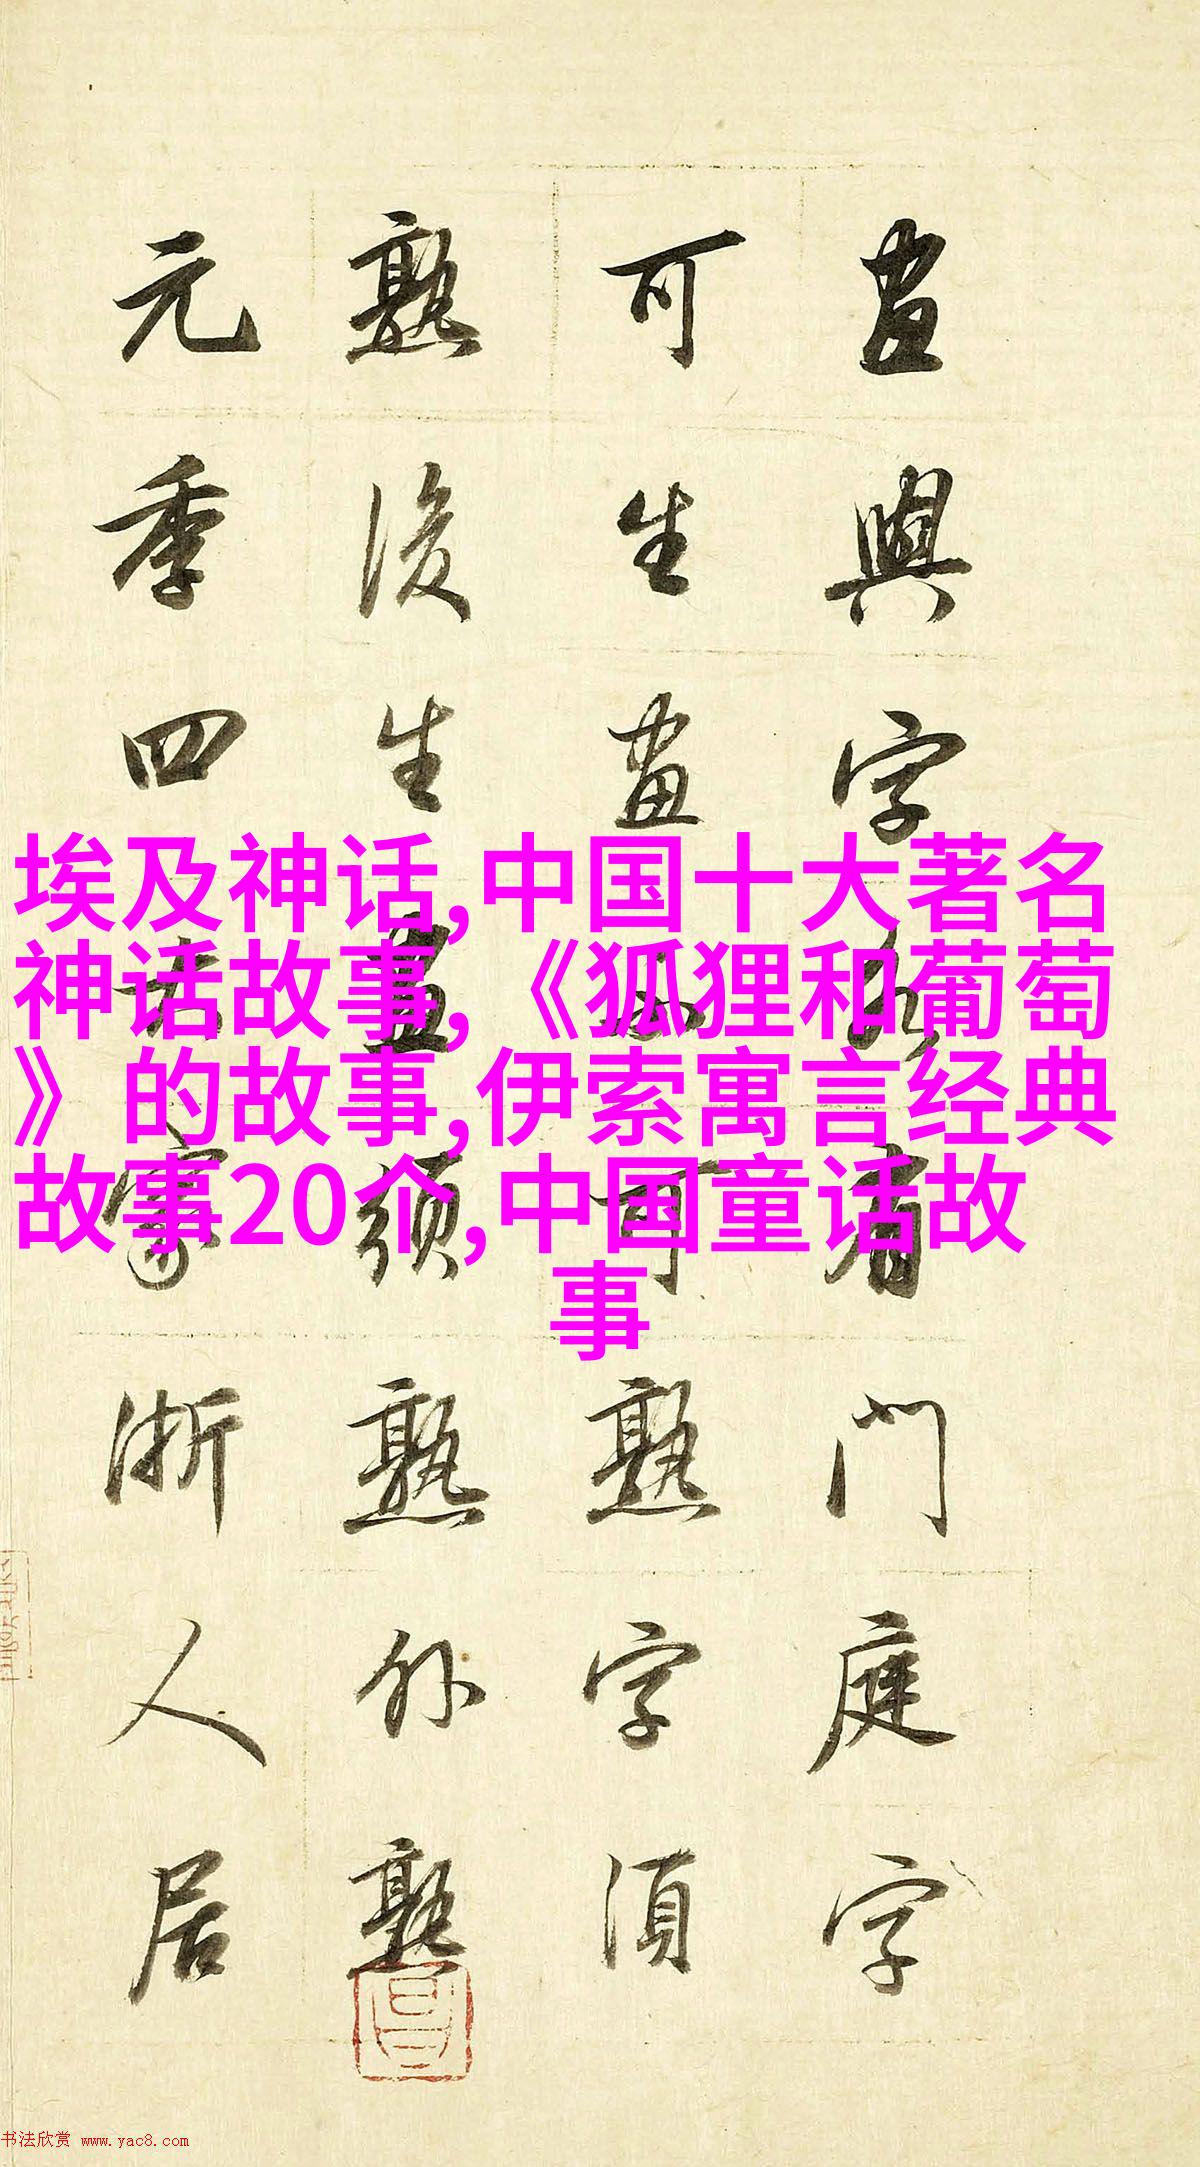 畫與字各有門庭字
可生畫不可熟字須
熟後生畫須熟外熟
元季四大家浙人居
埃及神话,中国十大著名
神话故事,《狐狸和葡萄
》的故事,伊索寓言经典
故事20个,中国童话故
事
书法欣赏 www.yac8.com